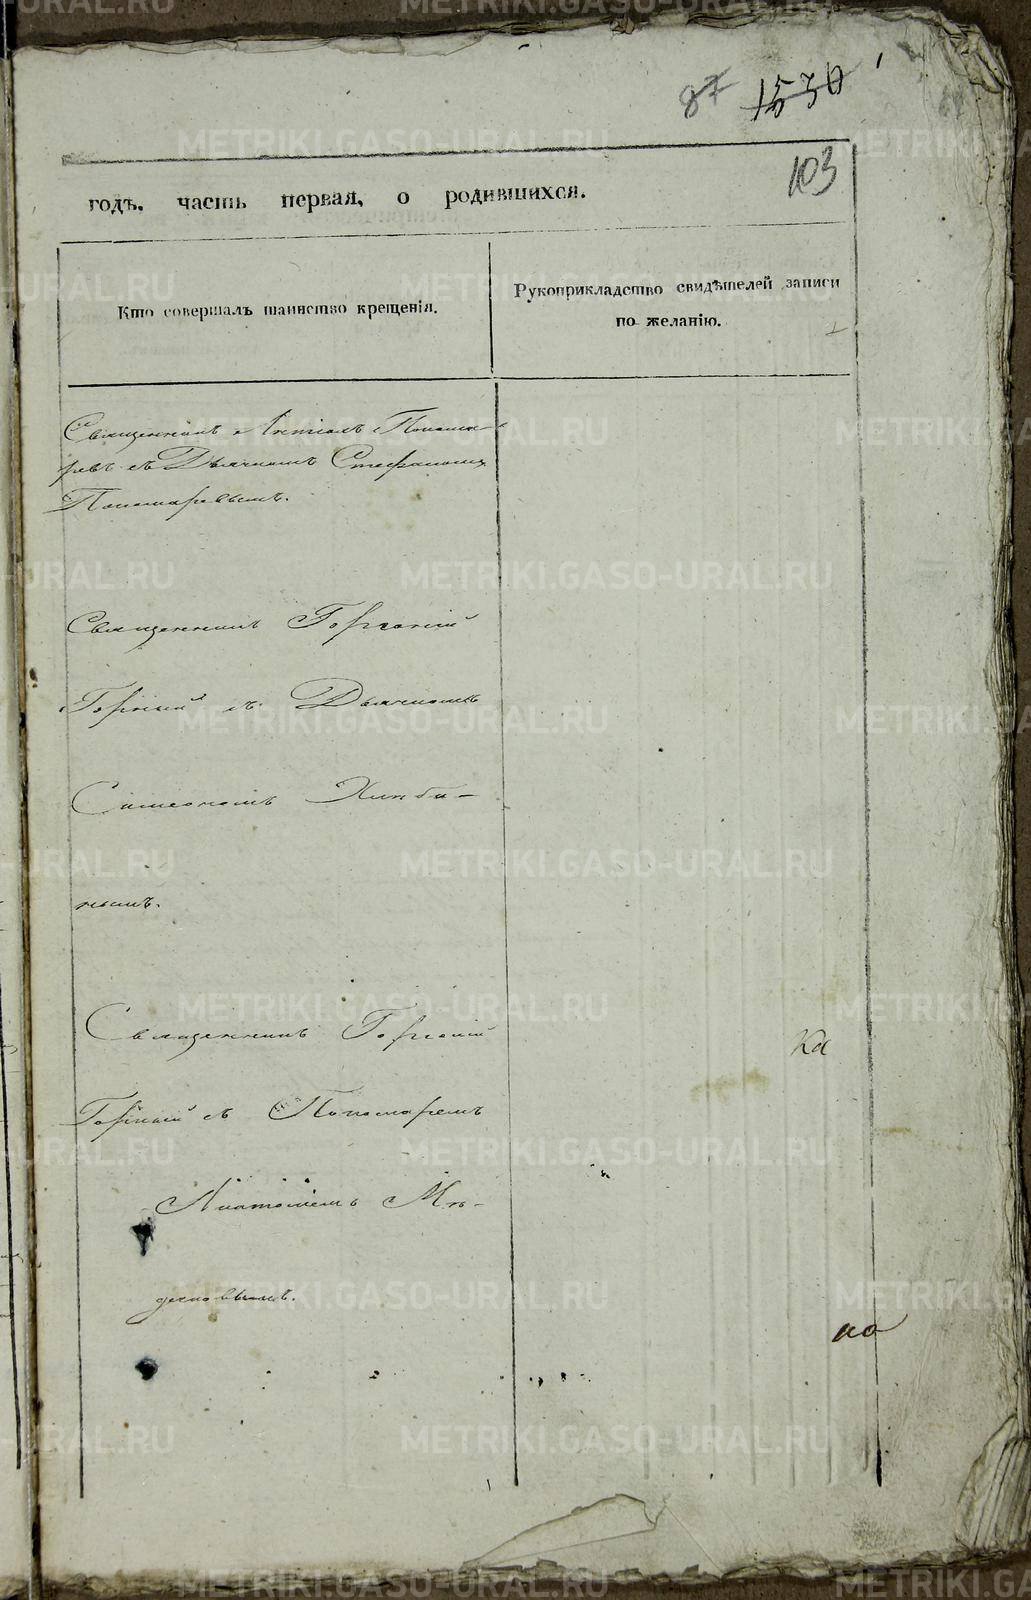 87 1530
103
годъ, часть первая, о родившихся.
Кто совершалъ таинство крещенія.
Рукоприкладство свидѣтелей записи
по желанію.
Священникъ Понома-
ревъ съ Дьячкомъ Стефаномъ
Пономаревымъ.
Священникъ Горгоній
Горный съ Дьячкомъ
Симеономъ
нымъ.
Священникъ Горгоній
Горный съ Пономаремъ
Анатоліемъ
METRIKI.GASO-URAL.RU